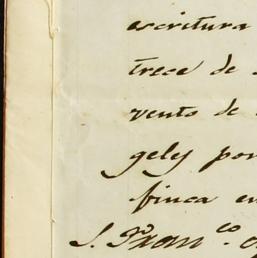 escritura
trece de
vento de
gely por
finca en
S. Fran.co